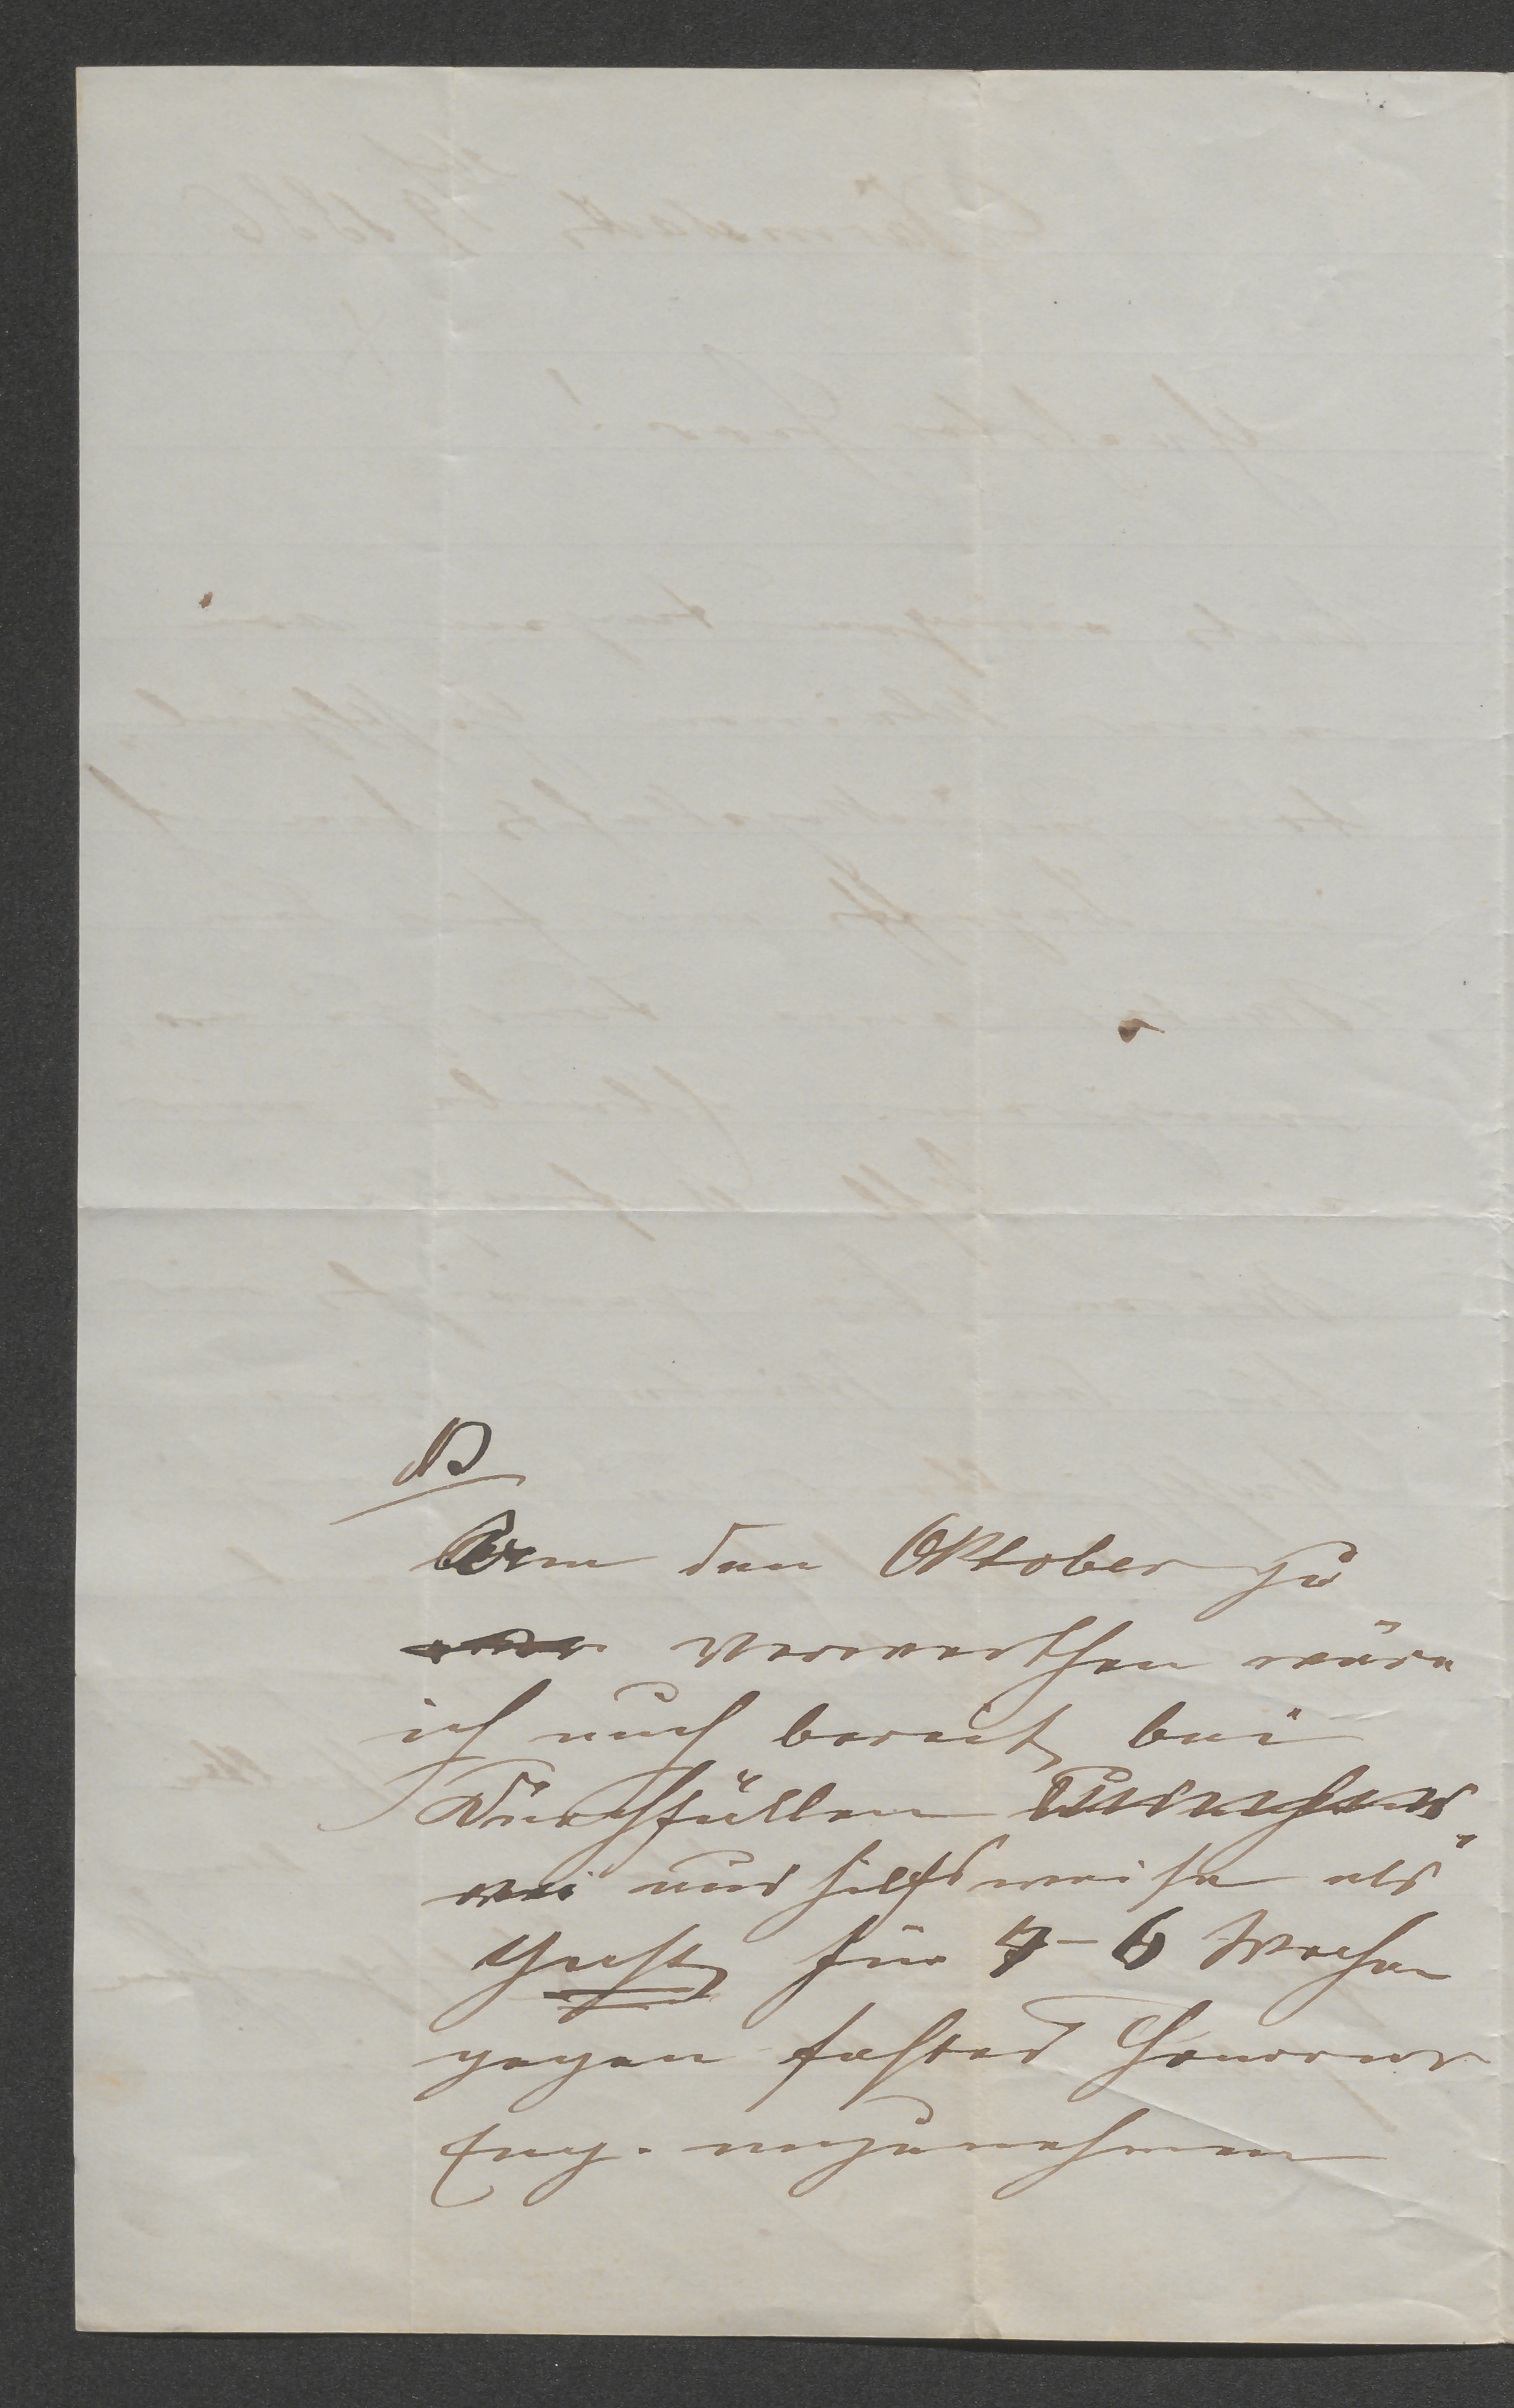 NB
Um den Oktober zu
verwerthen wäre
ich auch bereit bei
Durchfällen
und hilfsweise als
Gast für 4-6 Wochen
gegen festes Honorar
Eng. anzunehmen